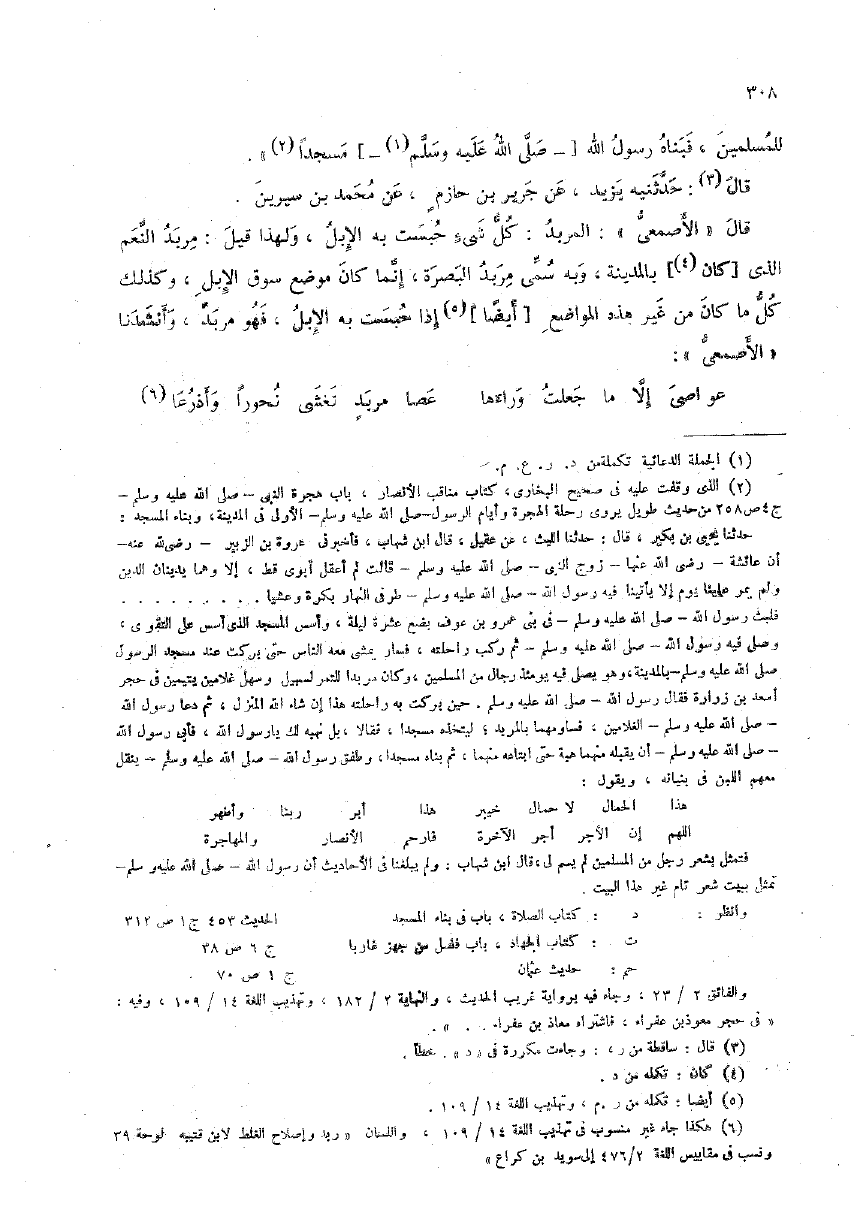 ٣٠٨
للمُسلمينَ ، فَبَناهُ رسولُ الله [ – صَلَّى اللهُ عَلَيه وسَلَّم(١) – ] مَسجداً (٢) » .
قالَ (٣) : حَدَّثَنيه يَزيد ، عَن جَرير بن حازمٍ ، عَن مُحَمد بن سيرينَ .
قالَ « الأَصمعىُّ » : المربدُ : كُلُّ شَىءٍ حُبسَت به الإبلُ ، وَلهذا قيلَ : مِربَدُ النَّعَم
الذى [كان (٤)] بالمدينة ، وَبه سُمِّى مِربَدُ البَصرَة ، إنَّما كانَ موضع سوق الإبلِ ، وكذلك
كُلُّ ما كانَ من غَير هذه المواضعِ [ أيضًا ](٥) إذا حُبسَت به الإبلُ ، فَهُو مربَدٌ ، وَأَنشَدَنا
« الأَصمعىُّ » :
عواصىَ إلَّا ما جَعلتُ وَراءها عَصا مربَدٍ تَغشَى نُحوراً وَأَذرُعَا (٦)
(١) الجملة الدعائية تكملة من د . ر . ع . م .
(٢) الذى وقفت عليه فى صحيح البخارى ، كتاب مناقب الأنصار ، باب هجرة النبى – صلى الله عليه وسلم –
ج٤ ص٢٥٨ من حديث طويل يروى رحلة الهجرة وأيام الرسول– صلى الله عليه وسلم– الأولى فى المدينة ، وبناء المسجد :
حدثنا يحيى بن بكير ، قال : حدثنا الليث ، عن عقيل ، قال ابن شهاب ، فأخبرنى عروة بن الزبير – رضى لله عنه–
أن عائشة – رضى الله عنها – زوج النبى – صلى الله عليه وسلم – قالت لم أعقل أبوى قط ، إلا وهما يدينان الدين
ولم يمر علينا يوم إلا يأتينا فيه رسول الله – صلى الله عليه وسلم – طرفى النهار بكرة وعشيا . . . . . . . .
فلبث رسول الله – صلى الله عليه وسلم – فى بنى عمرو بن عوف بضع عشرة ليلة ، وأسس المسجد الذى أسس على التقوى ،
وصلى فيه رسول الله – صلى الله عليه وسلم – ثم ركب راحلته ، فسار يمشى معه الناس حتى بركت عند مسجد الرسول
صلى الله عليه وسلم–بالمدينة ، وهو يصلى فيه يومئذ رجال من المسلمين ، وكان مربدا للتمر لسهيل وسهل غلامين يتيمين فى حجر
أسعد بن زرارة فقال رسول الله – صلى الله عليه وسلم . حين بركت به راحلته هذا إن شاء الله المنزل ، ثم دعا رسول الله
– صلى الله عليه وسلم – الغلامين ، فساومهما بالمربد ؛ ليتخذه مسجدا ، فقالا ، بل نهبه لك يارسول الله ، فأبى رسول الله
– صلى الله عليه وسلم – أن يقبله منهما هبة حتى ابتاعه منهما ، ثم بناه مسجدا ، وطفق رسول الله – صلى الله عليه وسلم – ينقل
معهم اللبن فى بنيانه ، ويقول :
هذا الحمال لا حمال خيبر هذا أبر ربنا وأطهر
اللهم إن الأجر أجر الآخرة فارحم الأنصار والمهاجرة
فتمثل بشعر رجل من المسلمين لم يسم لى ، قال ابن شهاب : ولم يبلغنا فى الأحاديث أن رسول الله – صلى الله عليه وسلم–
تمثل ببيت شعر تام غير هذا البيت .
وانظر : د : كتاب الصلاة ، باب فى بناء المسجد الحديث ٤٥٣ ج ١ ص ٣١٢
ت : كتاب الجهاد ، باب فضل من جهز غازيا ج ٦ ص ٣٨
حم : حديث عثمان ج ١ ص ٧٠
والفائق ٢ / ٢٣ ، وجاء فيه برواية غريب الحديث ، والنهاية ٢ / ١٨٢ ، وتهذيب اللغة ١٤ / ١٠٩ ، وفيه :
« فى حجر معوذ بن عفراء ، فاشتراه معاذ بن عفراء . . . » .
(٣) قال : ساقطة من ر ، : وجاءت مكررة فى « د » . خطأ .
(٤) كان : تكلمه من د .
(٥) أيضا : تكلمه من ر . م ، وتهذيب اللغة ١٤ / ١٠٩ .
(٦) هكذا جاء غير منسوب فى تهذيب اللغة ١٤ / ١٠٩ ، واللسان « ربد وإصلاح الغلط لابن قتيبه لوحة ٣٩
ونسب فى مقاييس اللغة ٤٧٦/٢ إلى سويد بن كراع »